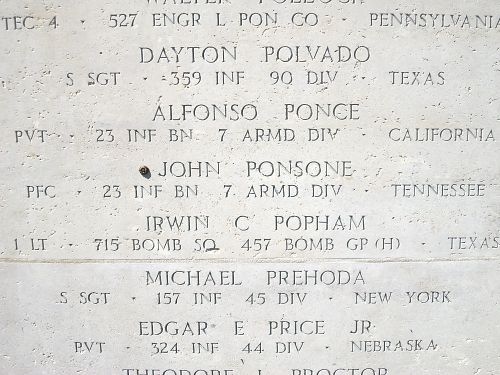 WALTER POLLOCK
TEC 4 · 527 ENGR L PON CO · PENNSYLVANIA
DAYTON POLVADO
S SGT · 359 INF 90 DIV · TEXAS
ALFONSO PONCE
PVT · 23 INF BN 7 ARMD DIV · CALIFORNIA
JOHN PONSONE
PFC · 23 INF BN 7 ARMD DIV · TENNESSEE
IRWIN C POPHAM
1 LT · 715 BOMB SQ 457 BOMB GP (H) · TEXAS
MICHAEL PREHODA
S SGT · 157 INF 45 DIV · NEW YORK
EDGAR E PRICE JR
PVT · 324 INF 44 DIV · NEBRASKA
THEODORE L PROCTOR